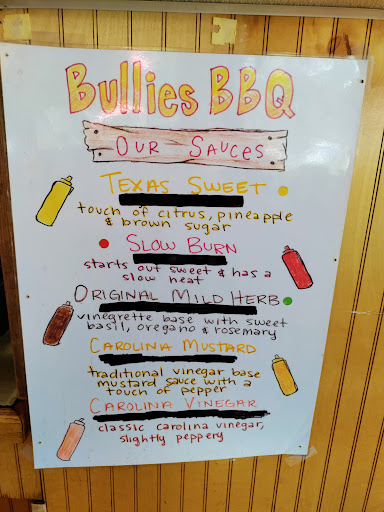 Bullies BBQ
OUR SAUCES
TEXAS SWEET
touch of citrus, pineapple
& brown sugar
SLOW BURN
starts out sweet & has a
slow heat
ORIGINAL MILD HERB
vinegrette base with sweet
basil, oregano & rosemary
CAROLINA MUSTARD
traditional vinegar base
mustard sauce with a
touch of pepper
CAROLINA VINEGAR
classic carolina vinegar,
slightly peppery